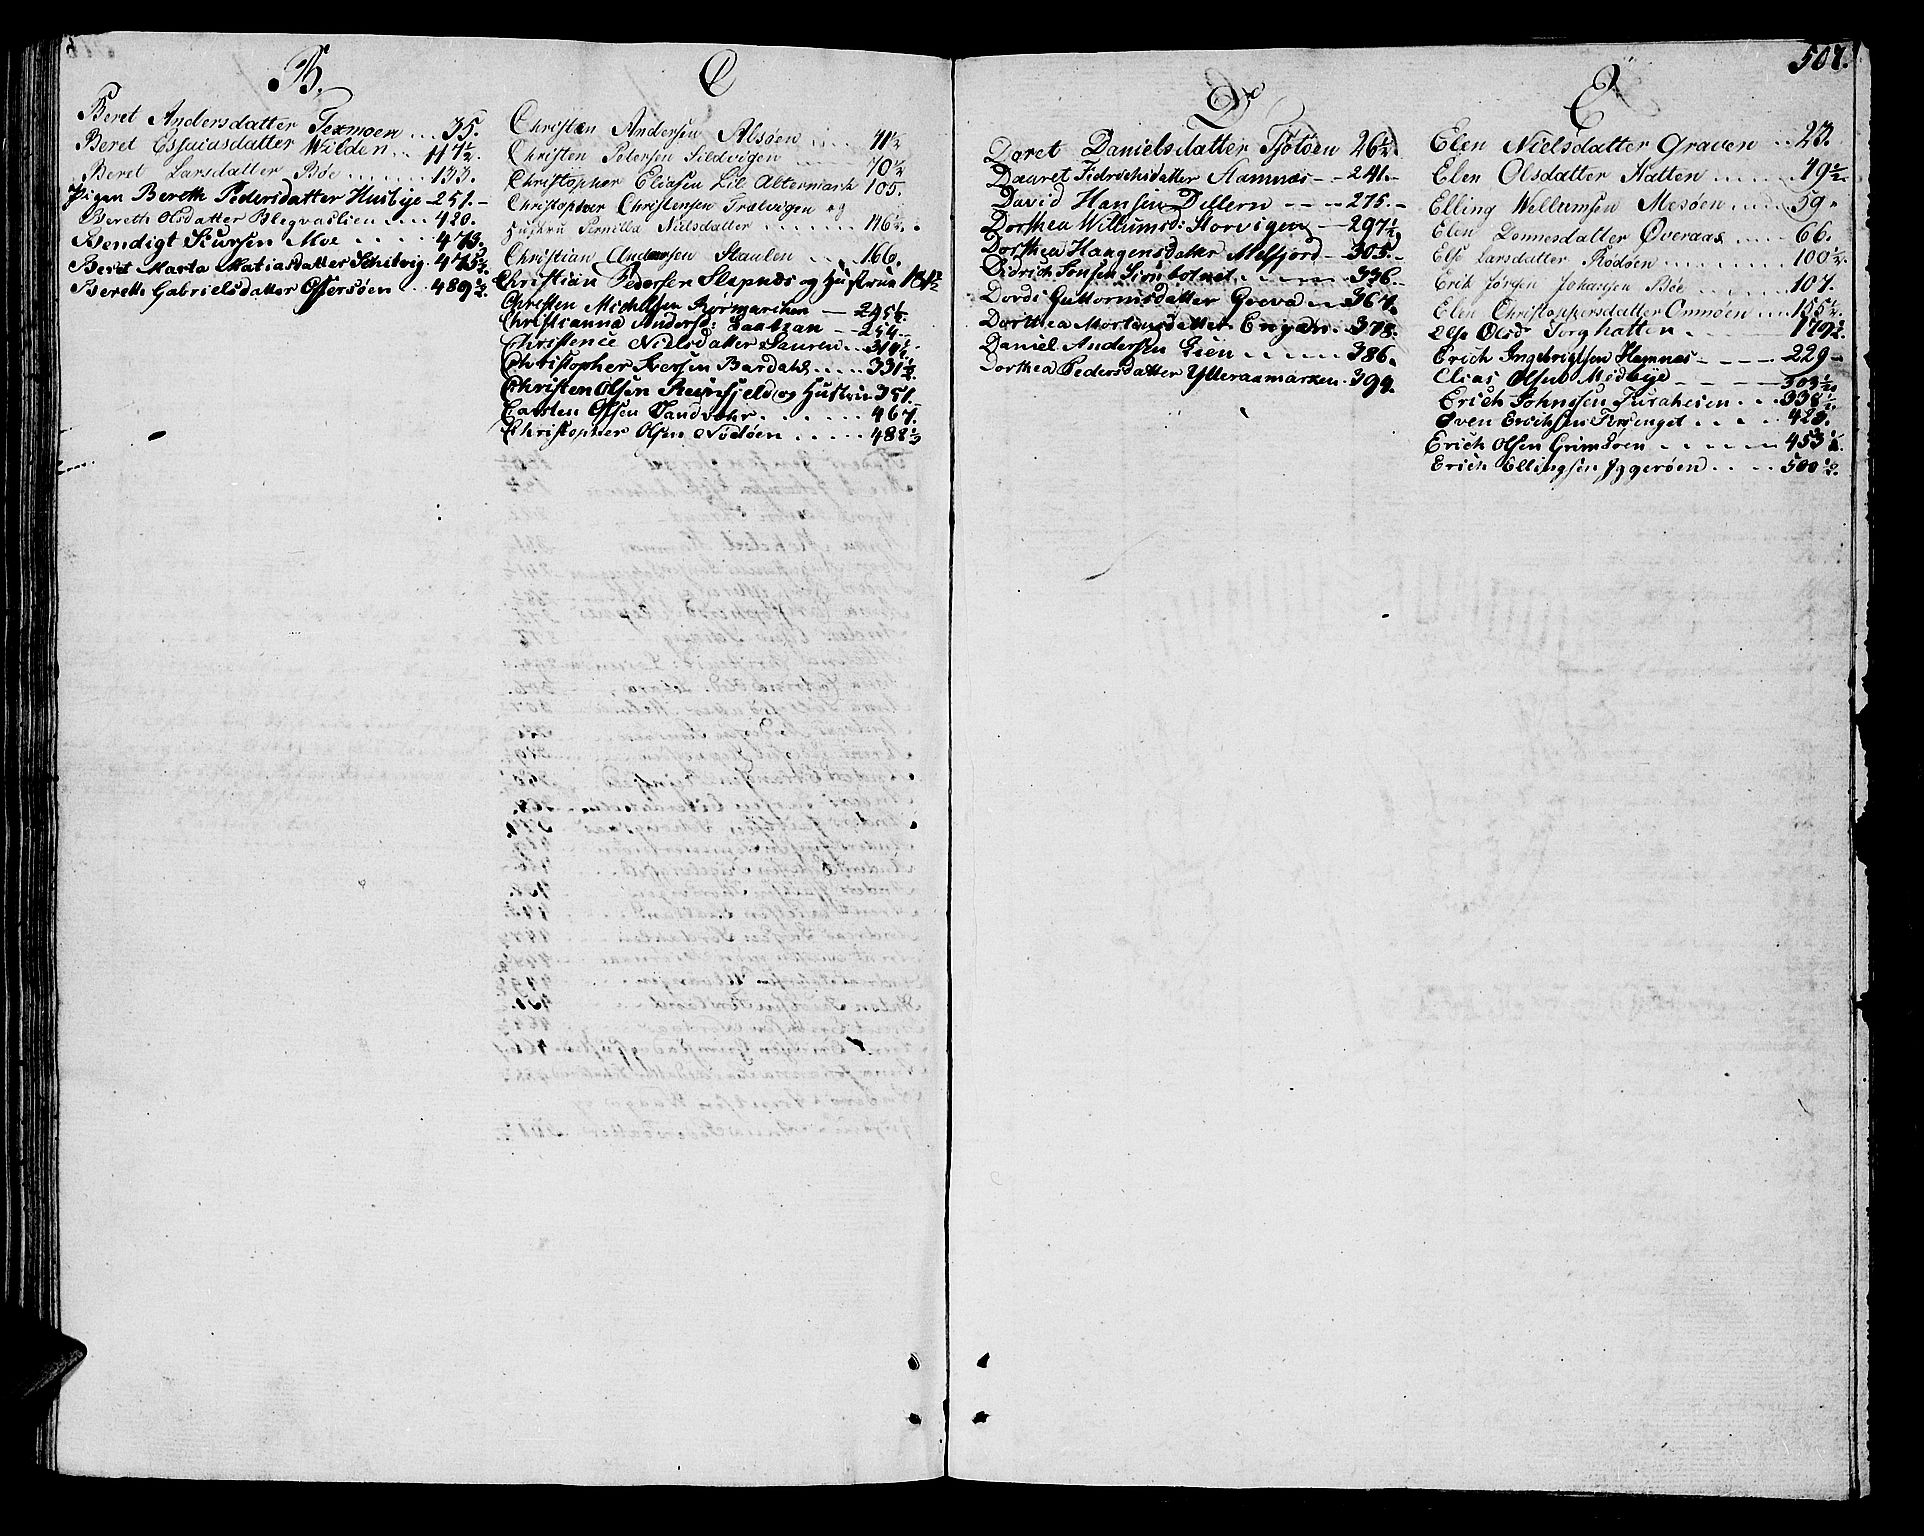 B.
Beret Andersdatter Texmoen ... 35.
Beret Essaiasdatter Wilden .. 117½.
Beret Larsdatter Bøe ...... 133.
Pigen Bereth Pedersdatter Husbye - 251. -
Bereth Olsdatter Blegvaslien .... 420.
Bendigt Siursen Moe ..... 473.
Beret Marta Matiasdatter Schitvig . 475½.
Bereth Gabrielsdatter Offersøen ... 489½.
C
Christen Andersen Alsøen ..... 41½
Christen Petersen Sildvigen .... 70½
Christopher Eliasen Lil Altermark 105.
Christopher Christensen Trælvigen og
Hustru Pernilla Nielsdatter ....... 146½.
Christian Andersen Staulen .... 166.
Christian Pedersen Slapnæs og Hustrue 181½
Christen Michelsen Rørmarchen — 245½.
Christianna Anders: Saabzan — 254. -
Christence Nielsdatter Sauren .. 310½.
Christopher Iversen Bardahl .... 331½.
Christen Olsen Reinfjeld og Hustrue 351.
Carsten Olsen Sandvær ....... 467.
Christopher Olsen Nødøen ..... 488½
D
507.
Daret Danielsdatter Tjøtøen 26½.
Dauret Fidrichsdatter Hamnæs - - 241. -
David Hansen Dillern - - - - 275. -
Dorthea Willumsd: Storvigen - - 297½.
Dorthea Haagensdatter Melfjord - 305. -
Didrich Jonsen Sionbotnet - - - 336.
Dordi Guttormsdatter Greva .. 364.
Dorthea Mortensdatter Engan . 378.
Daniel Andersen Lien ...... 386.
Dorthea Pedersdatter Ytteraamarken . 394.
E
Elen Nielsdatter Graven .. 23.
Elen Olsdatter Hatten ..... 49½.
Elling Wellumsen Mesøen .... 59.
Elen Tønnesdatter Øveraas .... 66.
Else Larsdatter Rødøen ..... 100½.
Erik Jørgen Johansen Bøe ..... 107.
Elen Christophersdatter Ommøen ... 155½.
Else Olsd Torghatten . 179½.
Erich Ingebrigtsen Hamnæs - - - - 229 -
Elias Olsen Medbye - - - - - 303½.
Erich Johnsen Fusaheien ... 338½.
Even Erichsen Forsenget .... 423.
Erich Olsen Grimsøen ...... 453½.
Erich Ellingsen Yggerøen .... 500½.